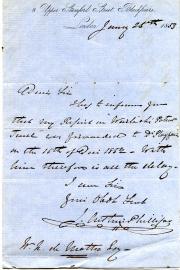 11 Upper Stamford Street, Blackfriars
London Jany 26th 1853
Dear Sir
I beg to inform you
that my Report on
Patent
was forwarded to Dr Playfair
on the 16th of Decr 1852 - With
him therefore is all the delay.
I am Sir
Your Obdt Servt
J. Arthur Phillips
W. K. de Mattos Esq